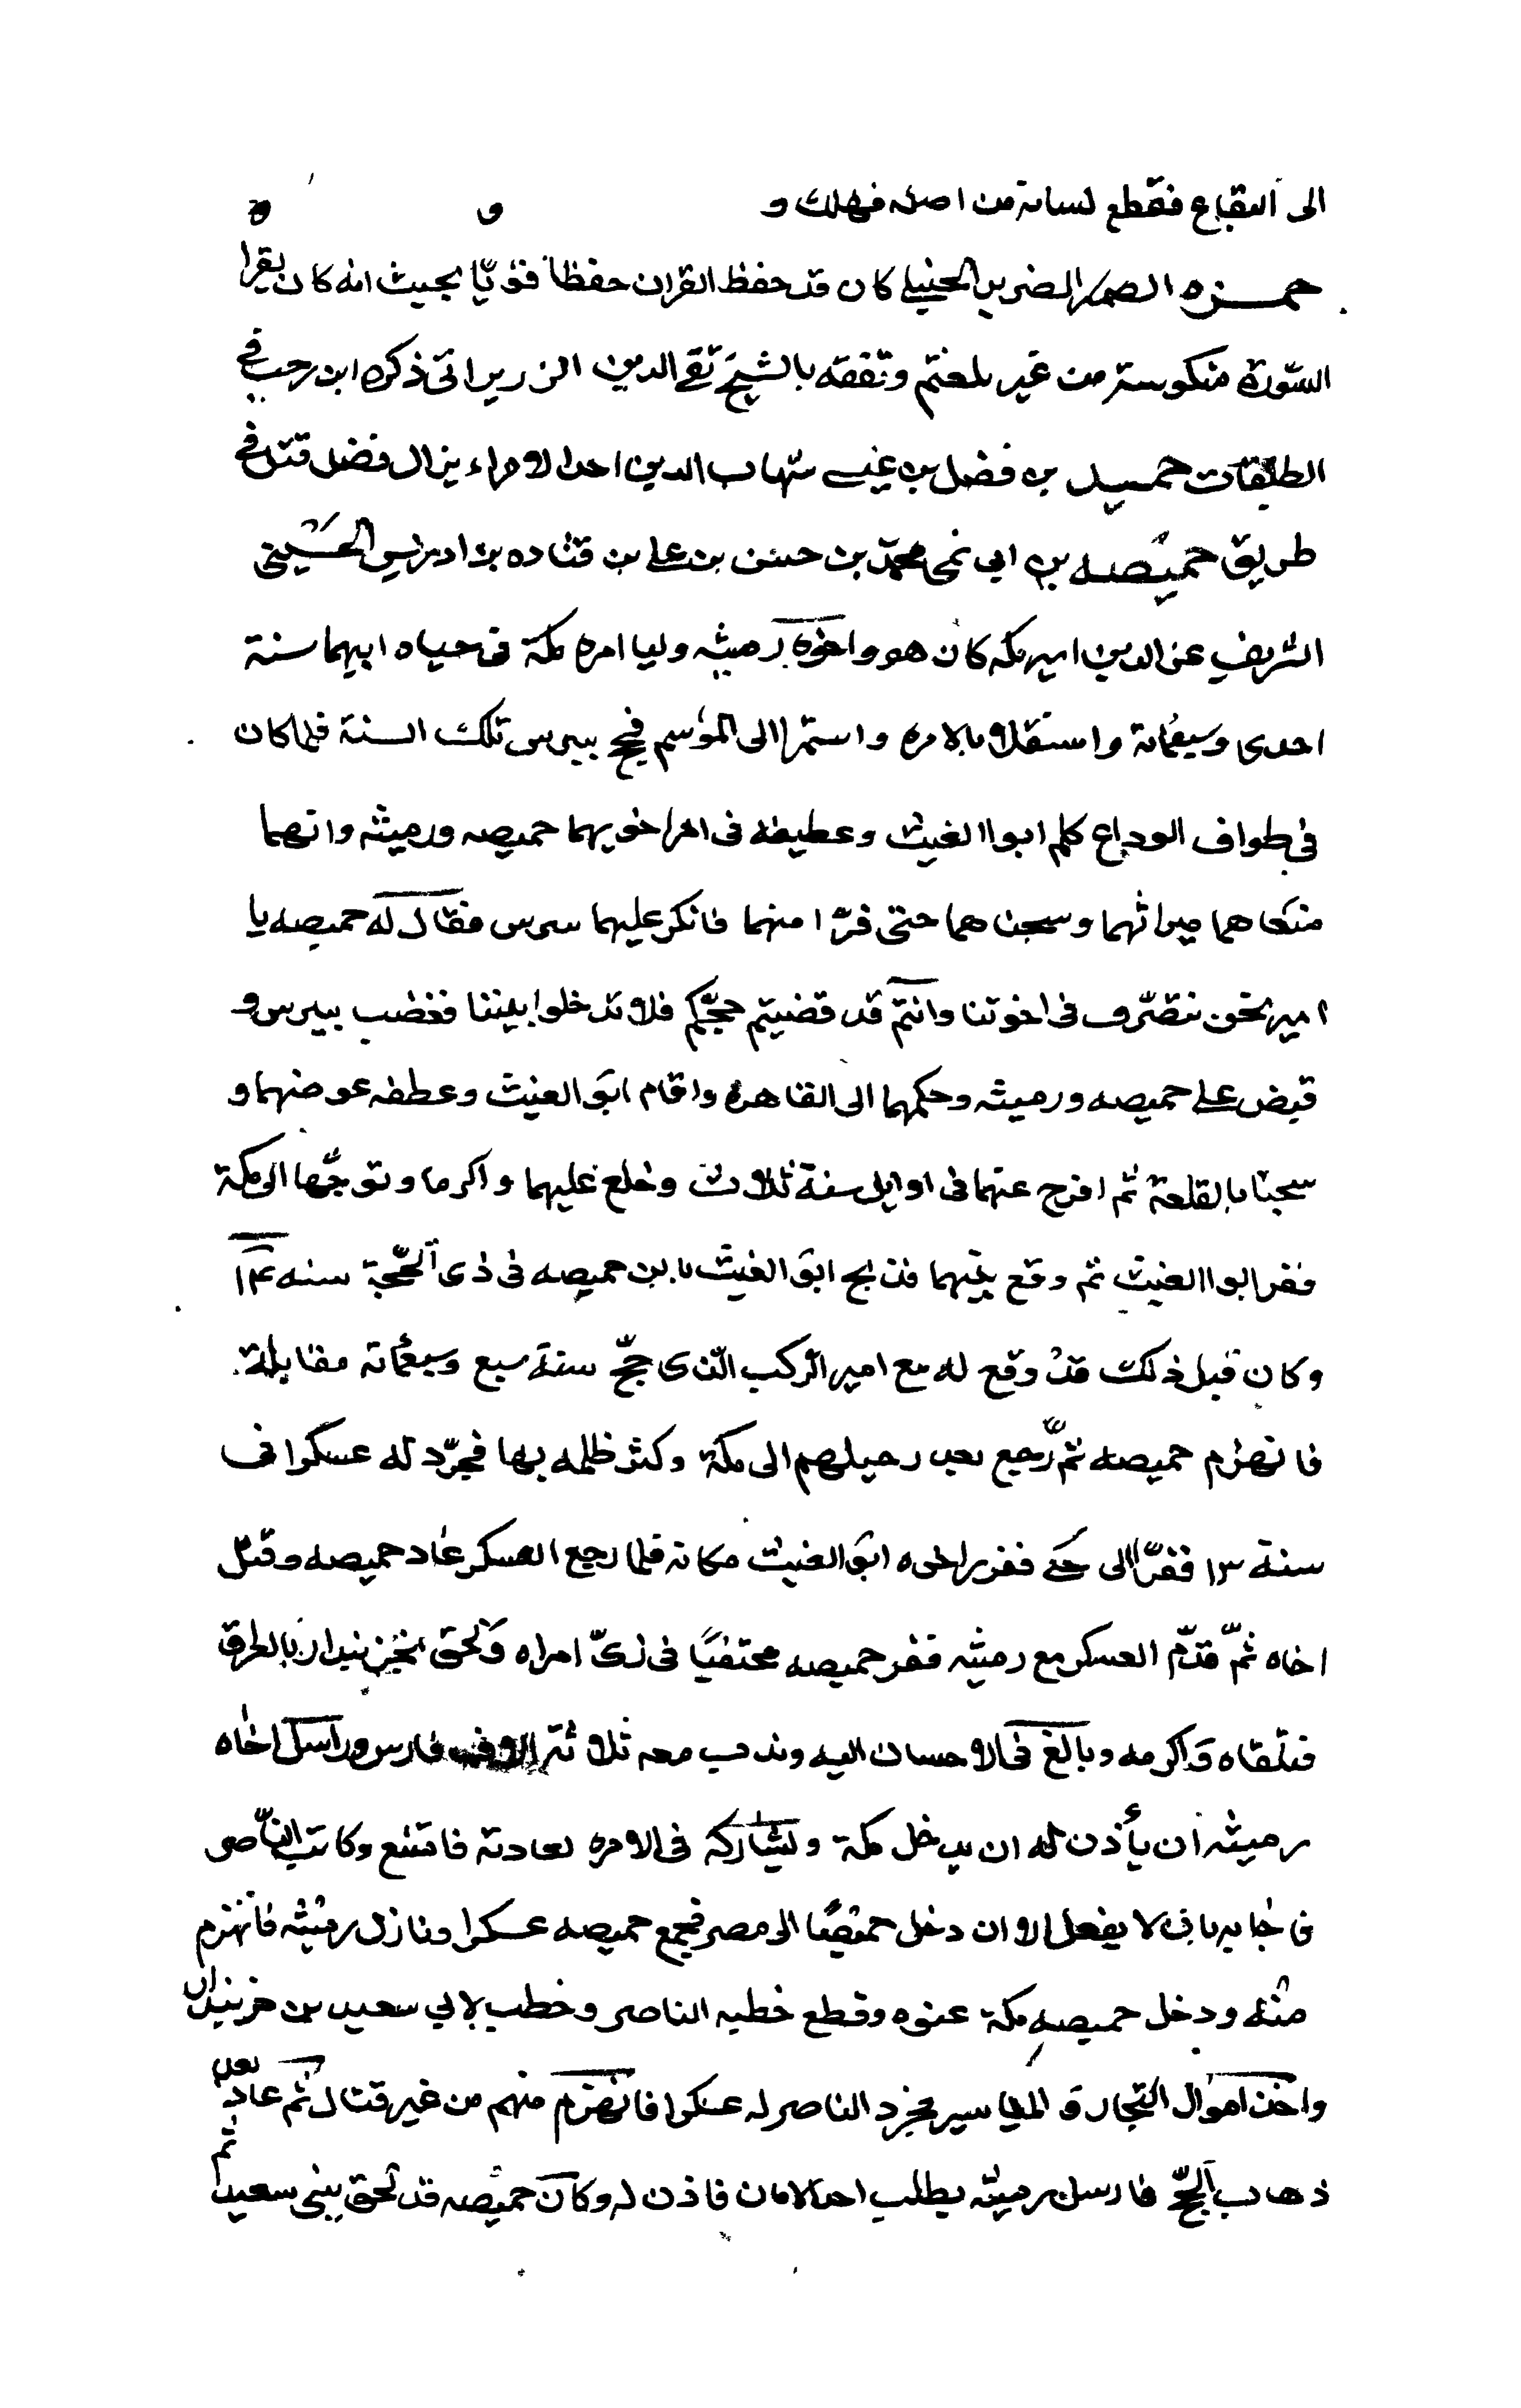 الى البقاع فقطع لسانه من اصله فهلك و
حمزه الضرير الحنبلي كان قد حفظ القران حفظا قويّا بحيث انه كان يقرا
السّورة منكوسة من غير تلعثم وتفقه بالشيخ تقي الدين الزريراتى ذكره ابن رجب في
الطبقات حميد بن فضل بن عيسى شهاب الدين احد الامراء من ال فضل قتل في
طريق حميصه بن ابي نمى محمّد بن حسن بن علي بن قتاده بن ادريس الحسيني
الشريف عز الدين امير مكه كان هو واخوه رميثه وليا امره مكة فى حياه ابيهما سنة
احدى وسبعمائة واستقلا بالامره واستمرا الى الموسم فحج بيبرس تلك السنة فلما كان
في طواف الوداع كلم ابوا الغيث وعطيفه فى امر اخويهما حميصه ورميثه وانهما
منعاهما ميراثهما وسجناهما حتى فرّا منهما فانكر عليهما سرس فقال له حميصه يا
امير نحن نتصّرف فى اخوتنا وانتم قد قضيتم حجّكم فلا تدخلوا بيننا فغضب بيبرس و
قبض على حميصه ورميثه وحكمهما الى القاهرة واقام ابو الغيث وعطفه عوضهما و
سجنا بالقلعة ثم افرج عنهما فى اوايل سنة ثلاث وخلع عليهما واكرما وتوجّها الى مكة
ففر ابوا الغيث ثم وقع بينهما فذبح ابو الغيث بابن حميصه فى ذى الحّجة سنه ١٤
وكان قبل ذلك قد وقع له مع امير الركب الذى حجّ سنة سبع وسبعمائة مقابلة
فانهزم حميصه ثمّ رجع بعد رحيلهم الى مكة وكثر ظلمه بها فجرّد له عسكرا فى
سنة ١٣ ففرّ الى فقرر اخوه ابو الغيث مكانه فلما رجع العسكر عاد حميصه وقتل
اخاه ثمّ قدّم العسكر مع رميثه ففر حميصه مختفيًا فى زىّ امراه ولحق بخزبندا بالعراق
فتلقاه واكرمه وبالغ فى الاحسان اليه وندب معه ثلاثة الاف فارس وراسل اخاه
رميثه ان يأذن له ان يدخل مكة وليشاركه فى الامره لعادته فامتنع وكاتب الناصر
فاجابه بان لا يفعل الا ان دخل حميصا الى مصر فجمع حميصه عسكرا ونازل رميثه فانهزم
منه ودخل حميصه مكة عنوه وقطع خطبه الناصر وخطب لابي سعيد بن خزبندا
واخذ اموال التجار و المياسير فجرد الناصر له عسكرا فانهزم منهم من غير قتال ثم عاد بعد
ذهاب الحجّ فارسل رميثه يطلب الامان فاذن له وكان حميصه قد لحق ببنى سعيد ثم